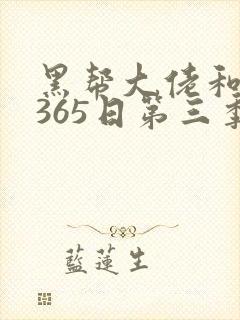 黑帮大佬和
365日第三季
藍蓮生